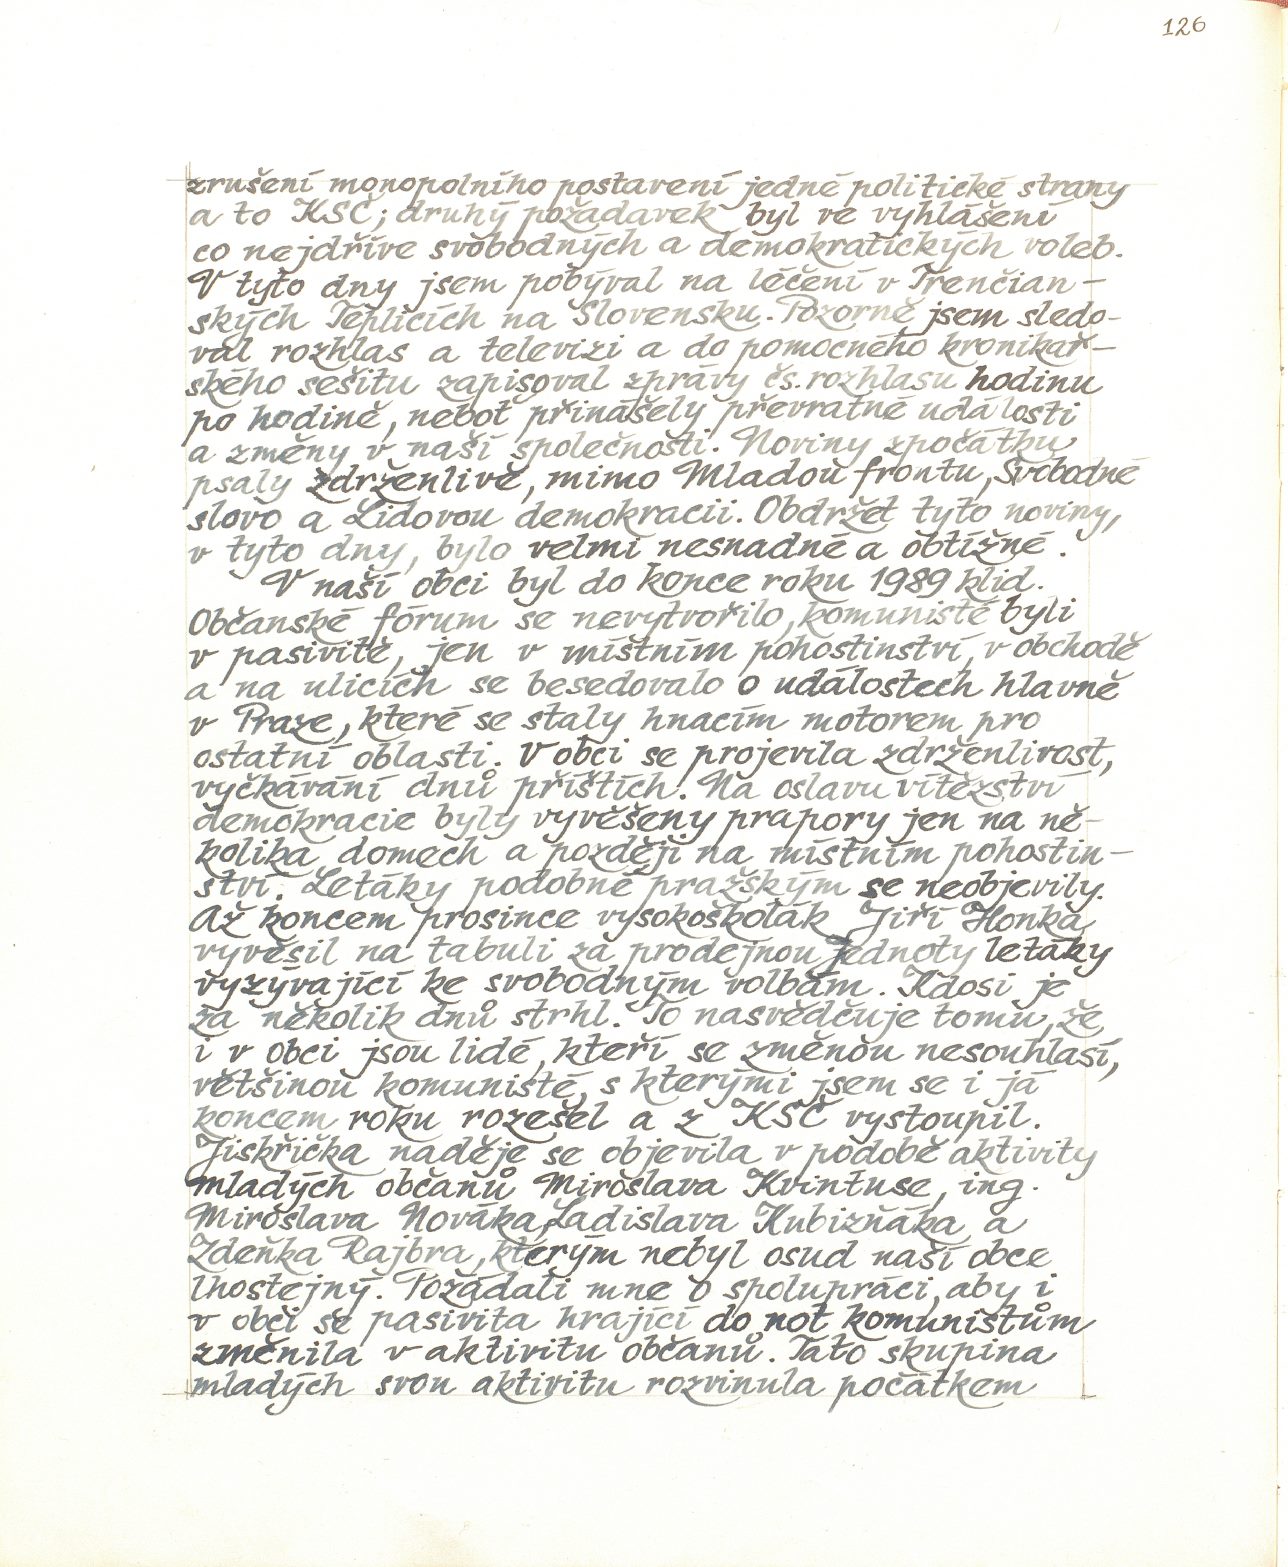 126
zrušení monopolního postavení jedné politické strany
a to KSČ; druhý požadavek byl ve vyhlášení
co nejdříve svobodných a demokratických voleb.
V tyto dny jsem pobýval na léčení v Trenčian-
ských Teplicích na Slovensku. Pozorně jsem sledo-
val rozhlas a televizi a do pomocného kronikář-
ského sešitu zapisoval zprávy čs. rozhlasu hodinu
po hodině, neboť přinášely převratné události
a změny v naší společnosti. Noviny zpočátku
psaly zdrženlivě, mimo Mladou frontu, Svobodné
slovo a Lidovou demokracii. Obdržet tyto noviny,
v tyto dny, bylo velmi nesnadné a obtížné.
V naší obci byl do konce roku 1989 klid.
Občanské fórum se nevytvořilo, komunisté byli
v pasivitě, jen v místním pohostinství, v obchodě
a na ulicích se besedovalo o událostech hlavně
v Praze, které se staly hnacím motorem pro
ostatní oblasti. V obci se projevila zdrženlivost,
vyčkávání dnů příštích. Na oslavu vítězství
demokracie byly vyvěšeny prapory jen na ně-
kolika domech a později na místním pohostin-
ství. Letáky podobné pražským se neobjevily.
Až koncem prosince vysokoškolák Jiří Honka
vyvěsil na tabuli za prodejnou Jednoty letáky
vyzývající ke svobodným volbám. Kdosi je
za několik dnů strhl. To nasvědčuje tomu, že
i v obci jsou lidé, kteří se změnou nesouhlasí,
většinou komunisté, s kterými jsem se i já
koncem roku rozešel a z KSČ vystoupil.
Jiskřička naděje se objevila v podobě aktivity
mladých občanů Miroslava Kvintuse, ing.
Miroslava Nováka, Ladislava Kubizňáka a
Zdeňka Rajbra, kterým nebyl osud naší obce
lhostejný. Požádali mne o spolupráci, aby i
v obci se pasivita hrající do not komunistům
změnila v aktivitu občanů. Tato skupina
mladých svou aktivitu rozvinula počátkem